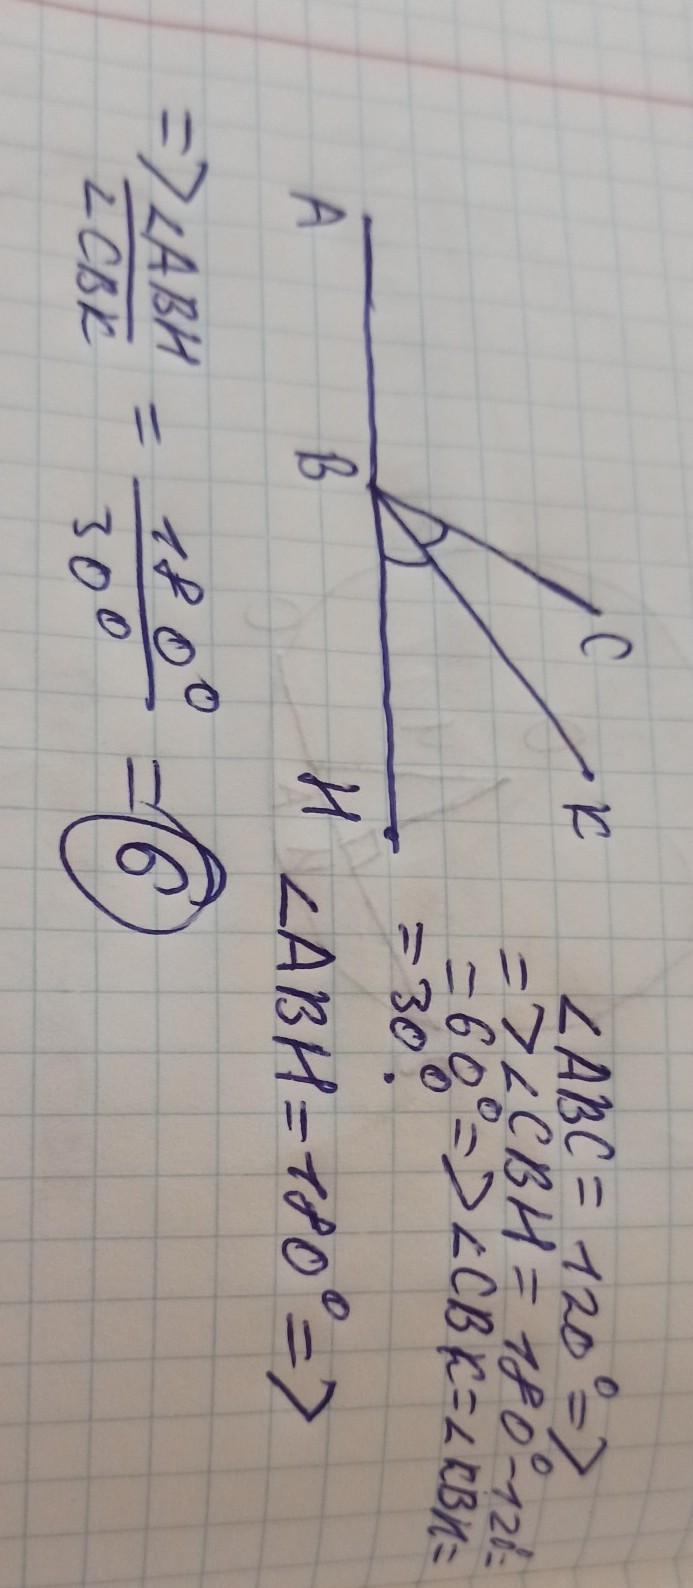 C
K
A
B
H
∠ABC = 120° =>
=> ∠CBH = 180° - 120 =
= 60° => ∠CBK = ∠KBH =
= 30°.
∠ABH = 180° =>
=> ∠ABH / ∠CBK = 180° / 30° = 6